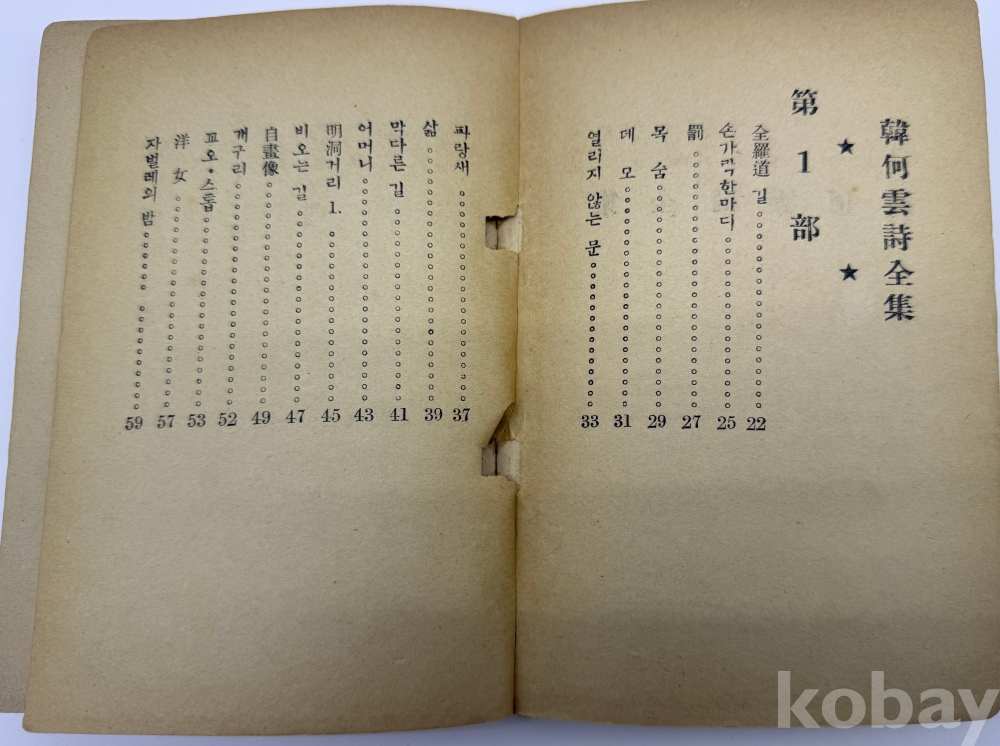 韓何雲詩全集
★ ★
第1部
全羅道 길 22
손가락한마디 25
罰 27
목숨 29
데모 31
열리지 않는 문 33
파랑새 37
삶 39
막다른 길 41
어머니 43
明洞거리 1. 45
비오는 길 47
自畫像 49
개구리 52
꼬오•스톱 53
洋女 57
자벌레의 밤 59
kobay